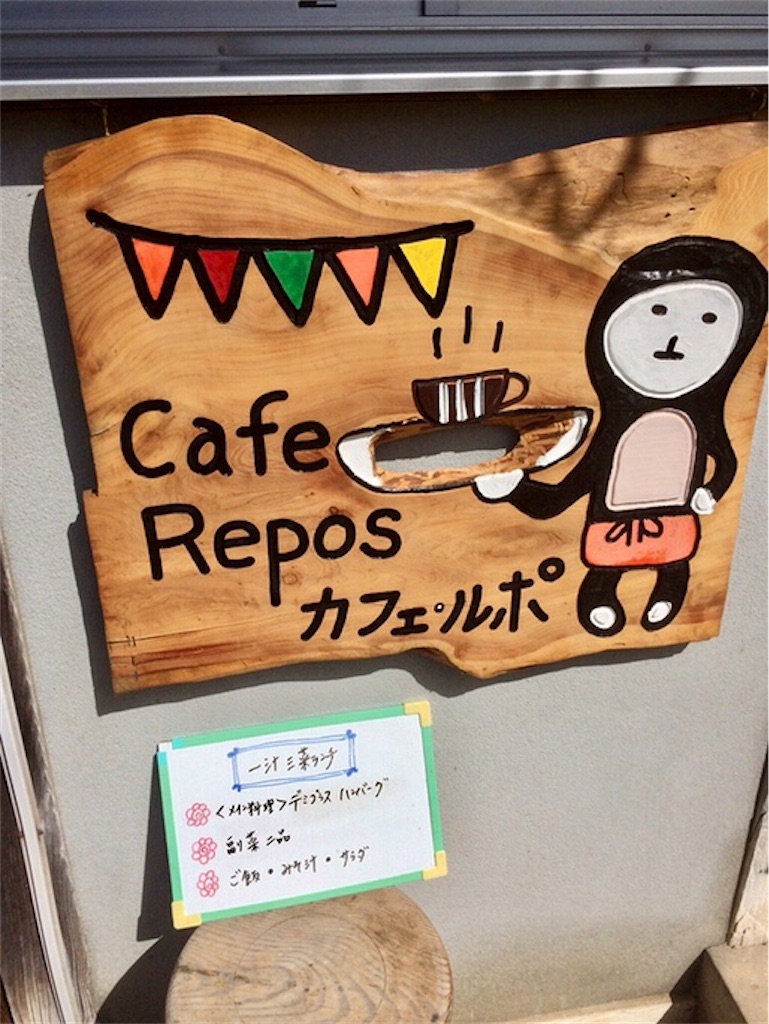 Cafe
Repos
カフェ・ルポ
一汁三菜ランチ
<メイン料理>デミグラス ハンバーグ
副菜二品
ご飯・みそ汁・サラダ